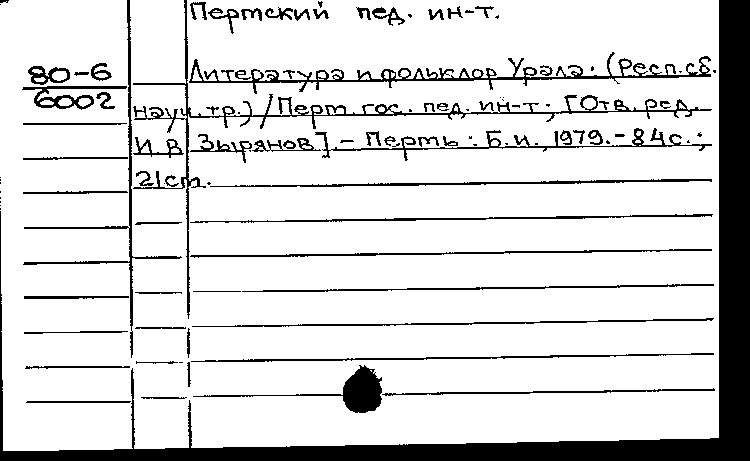 Пермский пед. ин-т.
80-6
6002
Литература и фольклор Урала. (Респ. сб.
науч. тр.) / Перм. гос. пед. ин-т; [Отв. ред.
И В Зырянов]. - Пермь: Б. и., 1979. - 84 с.;
21 см.